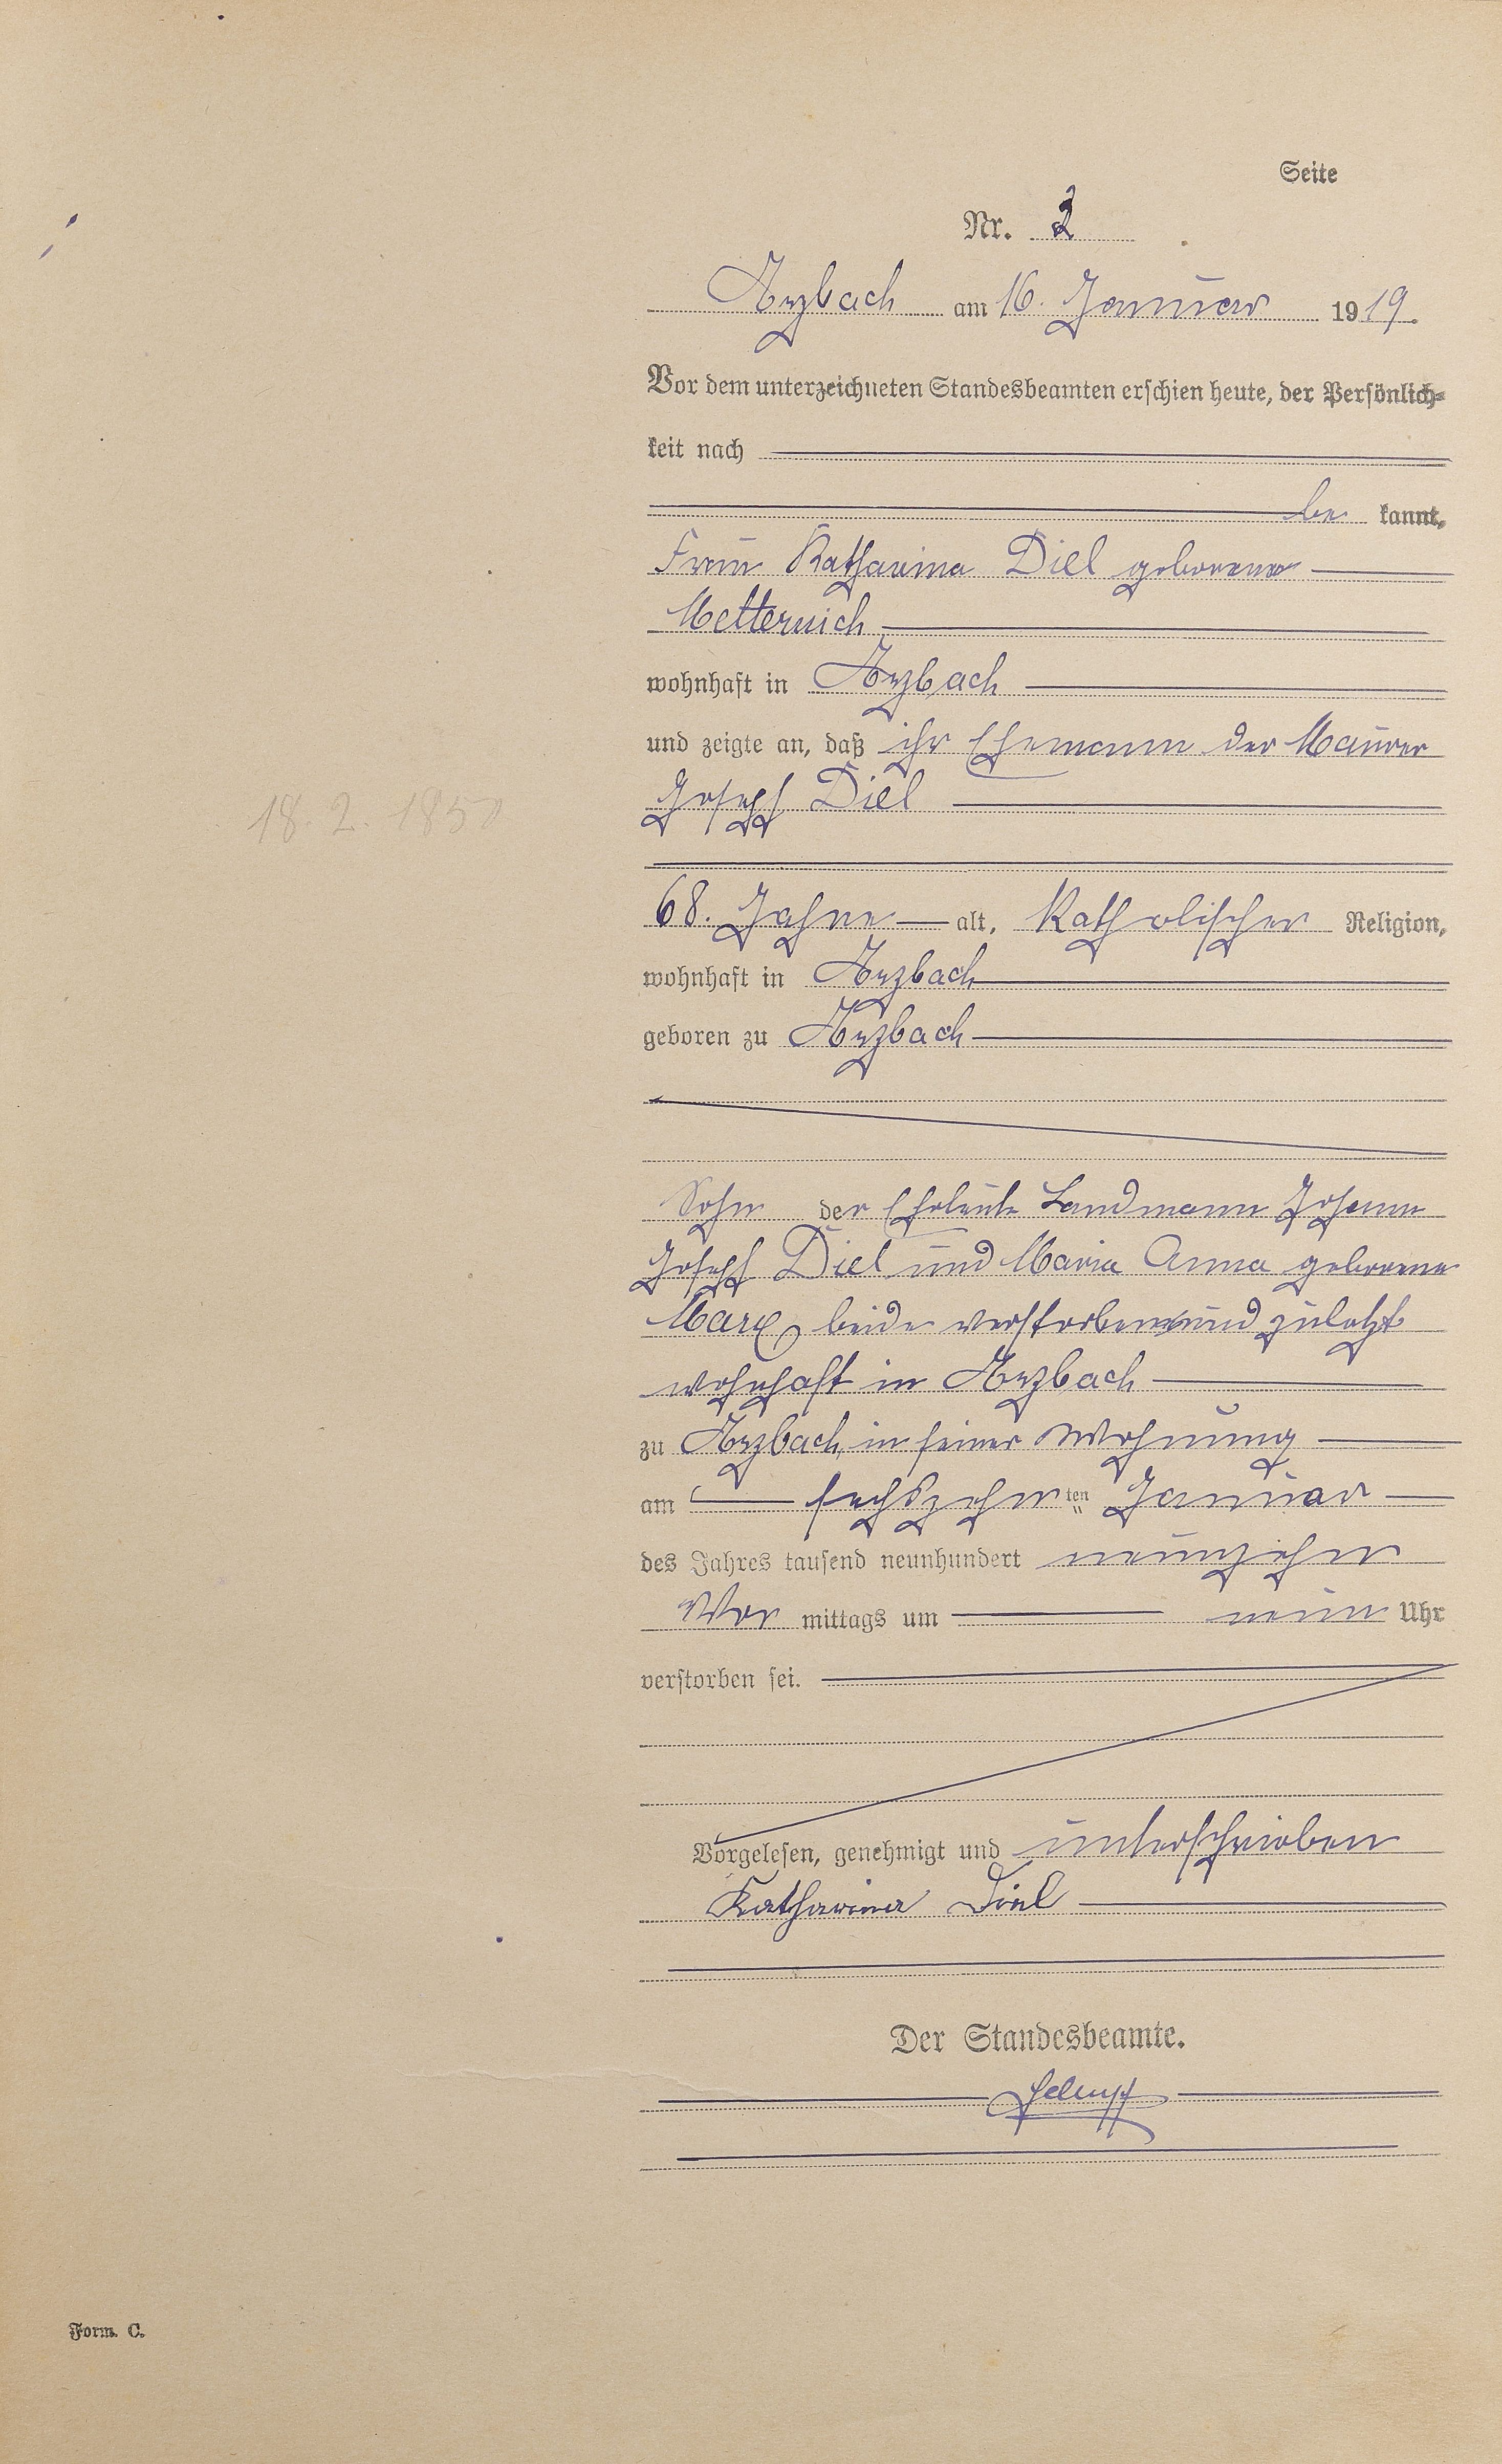 Seite
Nr. 3
Arzbach am 16. Januar 1919.
Vor dem unterzeichneten Standesbeamten erschien heute, der Persönlich-
keit nach
be kannt,
Frau Katharina Diel geborene
Metternich
wohnhaft in Arzbach
und zeigte an, daß ihr Ehemann der Maurer
Joseph Diel
18. 2. 1850
68. Jahre alt, Katholischer Religion,
wohnhaft in Arzbach
geboren zu Arzbach
Sohn der Eheleute Landmann Johann
Joseph Diel und Maria Anna geborene
Marx beide verstorben und zuletzt
wohnhaft in Arzbach
zu Arzbach, in seiner Wohnung
am sechszehnten Januar
des Jahres tausend neunhundert neunzehn
Vor mittags um neun Uhr
verstorben sei.
Vorgelesen, genehmigt und unterschrieben
Katharina Diel
Der Standesbeamte.
Form. C.